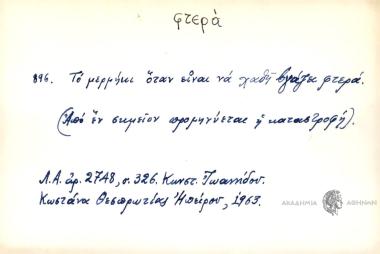 φτερά
896. Τό μερμήγκι ὅταν εἶναι νά χαθῆ βγάζει φτερά.
(Ἀπό ἕν σημεῖον προμηνύεται ἡ καταστροφή).
Λ.Α. ἀρ. 2748, σ. 326. Κωνστ. Ἰωαννίδου.
Κωστάνα Θεσπρωτίας Ἠπείρου, 1963.
ΑΚΑΔΗΜΙΑ ΑΘΗΝΩΝ